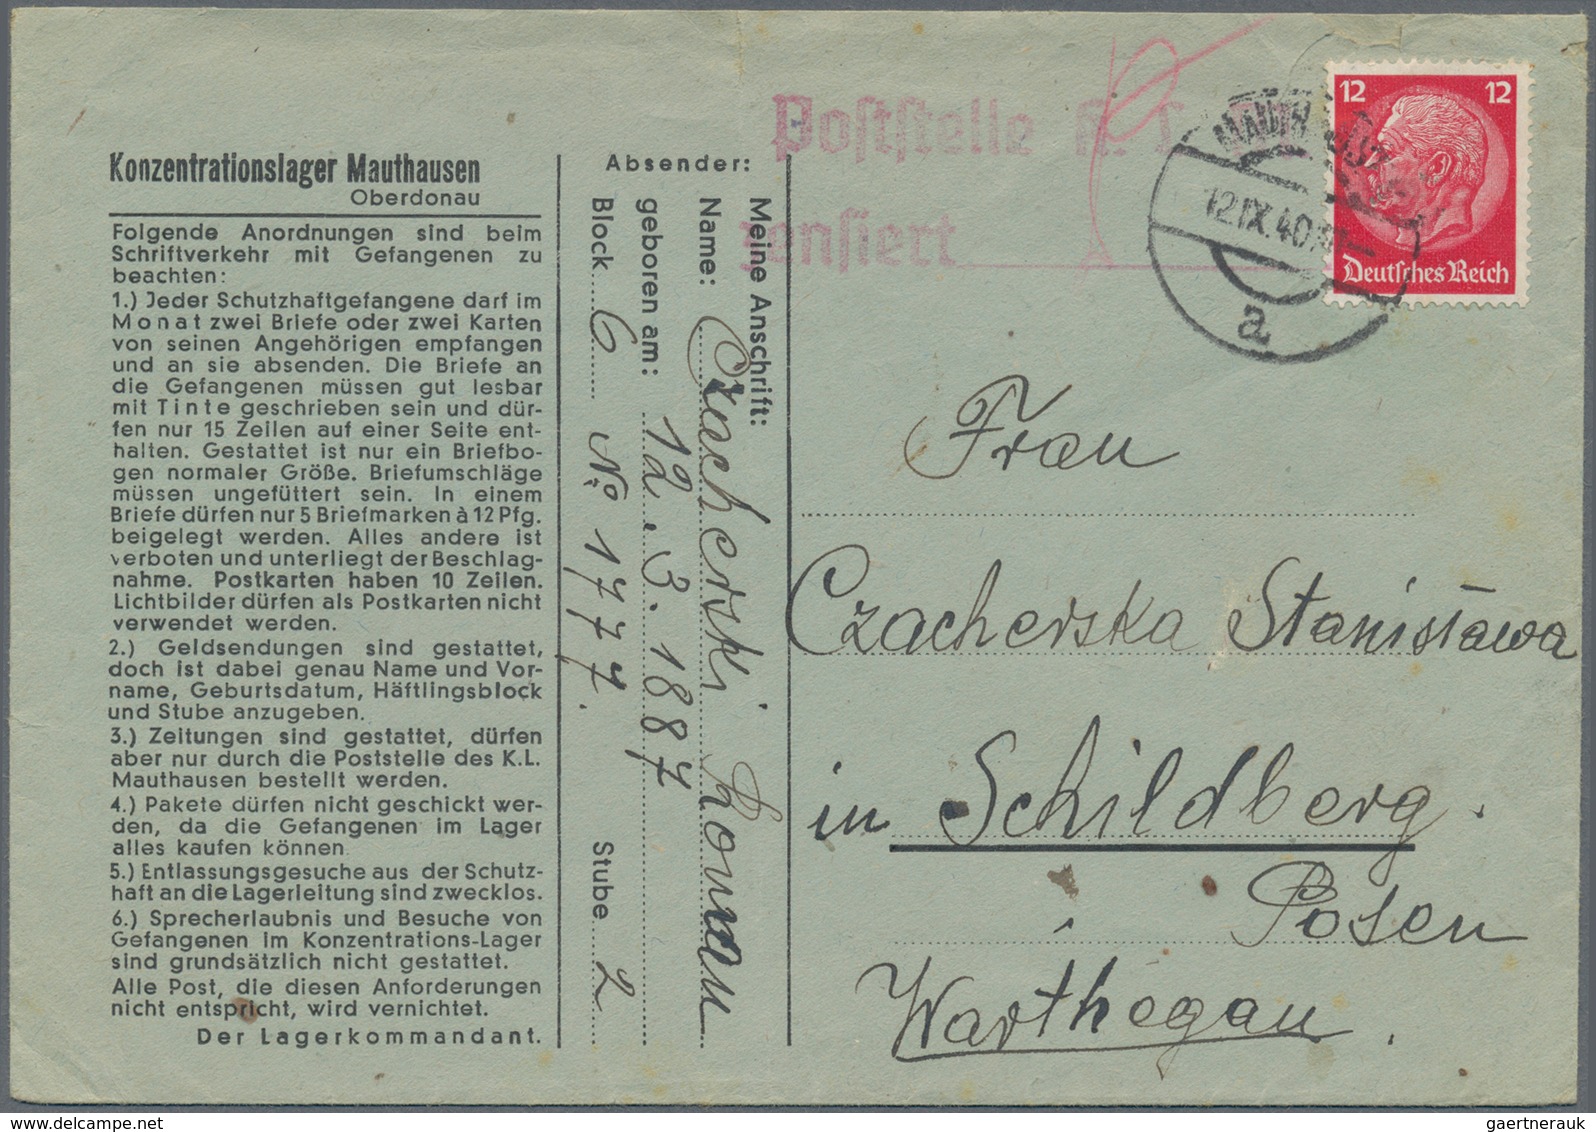 Konzentrationslager Mauthausen
Oberdonau
Folgende Anordnungen sind beim
Schriftverkehr mit Gefangenen zu
beachten:
1.) Jeder Schutzhaftgefangene darf im
Monat zwei Briefe oder zwei Karten
von seinen Angehörigen empfangen
und an sie absenden. Die Briefe an
die Gefangenen müssen gut lesbar
mit Tinte geschrieben sein und dür-
fen nur 15 Zeilen auf einer Seite ent-
halten. Gestattet ist nur ein Briefbo-
gen normaler Größe. Briefumschläge
müssen ungefüttert sein. In einem
Briefe dürfen nur 5 Briefmarken à 12 Pfg.
beigelegt werden. Alles andere ist
verboten und unterliegt der Beschlag-
nahme. Postkarten haben 10 Zeilen.
Lichtbilder dürfen als Postkarten nicht
verwendet werden.
2.) Geldsendungen sind gestattet,
doch ist dabei genau Name und Vor-
name, Geburtsdatum, Häftlingsblock
und Stube anzugeben.
3.) Zeitungen sind gestattet, dürfen
aber nur durch die Poststelle des K.L.
Mauthausen bestellt werden.
4.) Pakete dürfen nicht geschickt wer-
den, da die Gefangenen im Lager
alles kaufen können.
5.) Entlassungsgesuche aus der Schutz-
haft an die Lagerleitung sind zwecklos.
6.) Sprecherlaubnis und Besuche von
Gefangenen im Konzentrations-Lager
sind grundsätzlich nicht gestattet.
Alle Post, die diesen Anforderungen
nicht entspricht, wird vernichtet.
Der Lagerkommandant.
Absender:
Meine Anschrift:
Name: Czacherski Roman
geboren am: 12.3.1887
Block 6 № 1777. Stube 2
Poststelle K. L.
zensiert
12.IX.40
a
12 12
Deutsches Reich
Frau
Czacherska Stanisława
in Schildberg.
Posen
Warthegau.
gaertnerauk @ delcampe.net